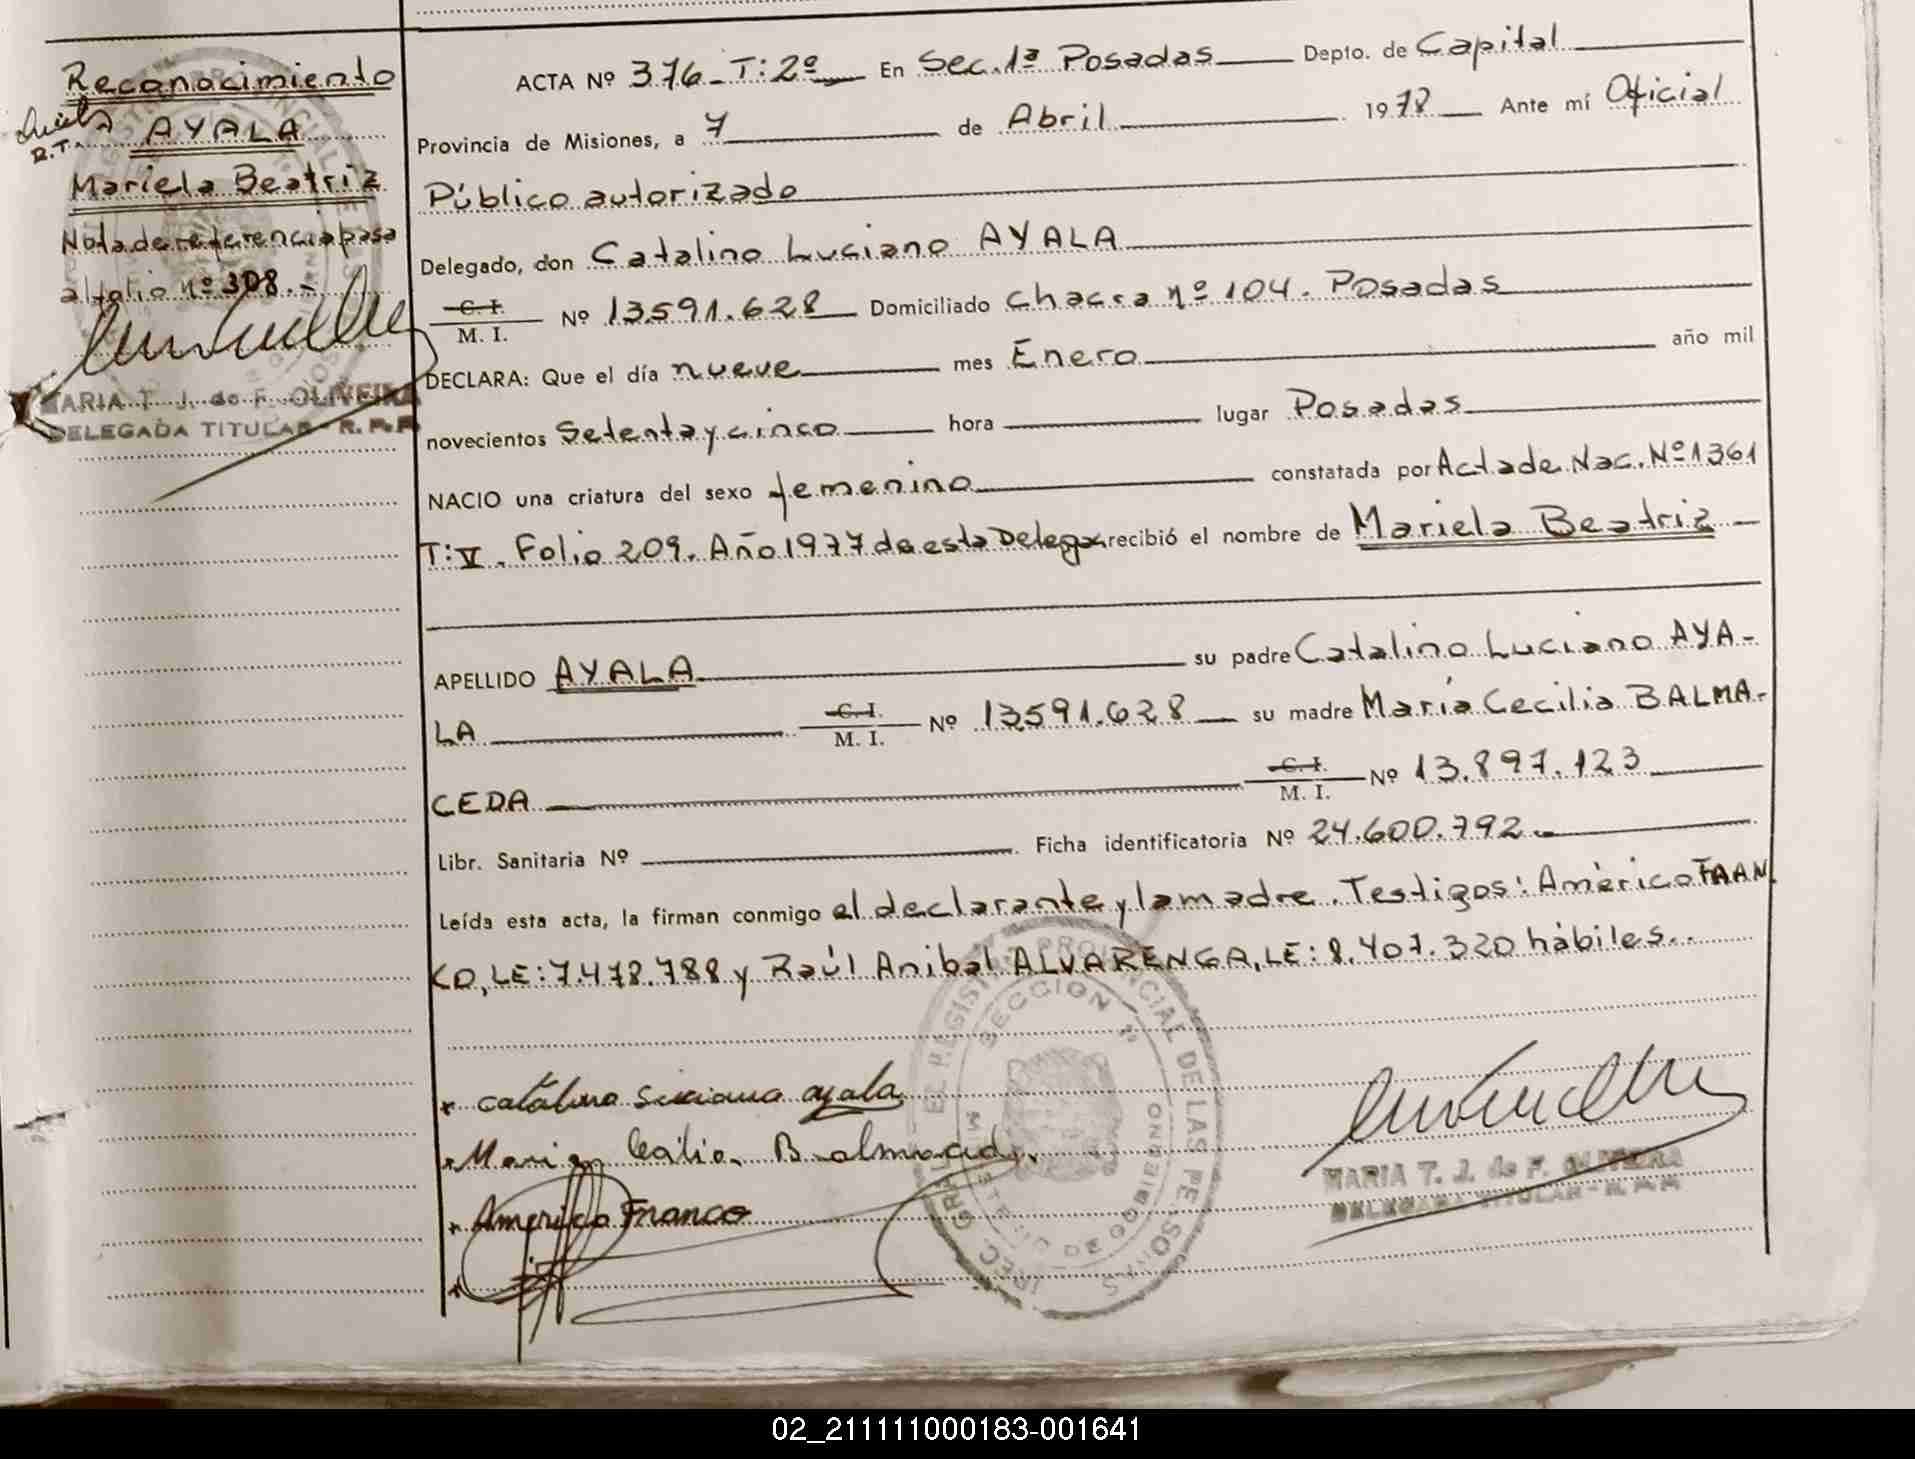 Reconocimiento
R.T. AYALA
Mariela Beatriz
Nota de referencia pasa
al folio nº 308.-
MARIA T. J. de F. OLIVEIRA
DELEGADA TITULAR - R. P. P.
ACTA Nº 376_T:2º En Sec. 1ª Posadas Depto. de Capital
Provincia de Misiones, a 7 de Abril 1978 Ante mí Oficial
Público autorizado
Delegado, don Catalino Luciano AYALA
C. I.
M. I. Nº 13.591.628 Domiciliado chacra nº 104. Posadas
DECLARA: Que el día nueve mes Enero año mil
novecientos Setenta y cinco hora lugar Posadas
NACIO una criatura del sexo femenino constatada por Acta de Nac. Nº 1361
T: V. Folio 209. Año 1977 de esta Delegac. recibió el nombre de Mariela Beatriz
APELLIDO AYALA su padre Catalino Luciano AYA-
LA C. I. M. I. Nº 13.591.628 su madre María Cecilia BALMA-
CEDA C. I. M. I. Nº 13.897.123
Libr. Sanitaria Nº Ficha identificatoria Nº 24.600.792
Leída esta acta, la firman conmigo el declarante y la madre. Testigos: Américo FRAN
CO, LE: 7.478.788 y Raúl Anibal ALVARENGA, LE: 8.407.320 hábiles..
Catalino Luciano ayala
Maria Cecilia Balmaceda
Americo Franco
DIREC. GRAL. DEL REGISTRO PROVINCIAL DE LAS PERSONAS
SECCION 1ª
MINISTERIO DE GOBIERNO
MARIA T. J. de F. OLIVEIRA
DELEGADA TITULAR - R. P. P.
02_211111000183-001641